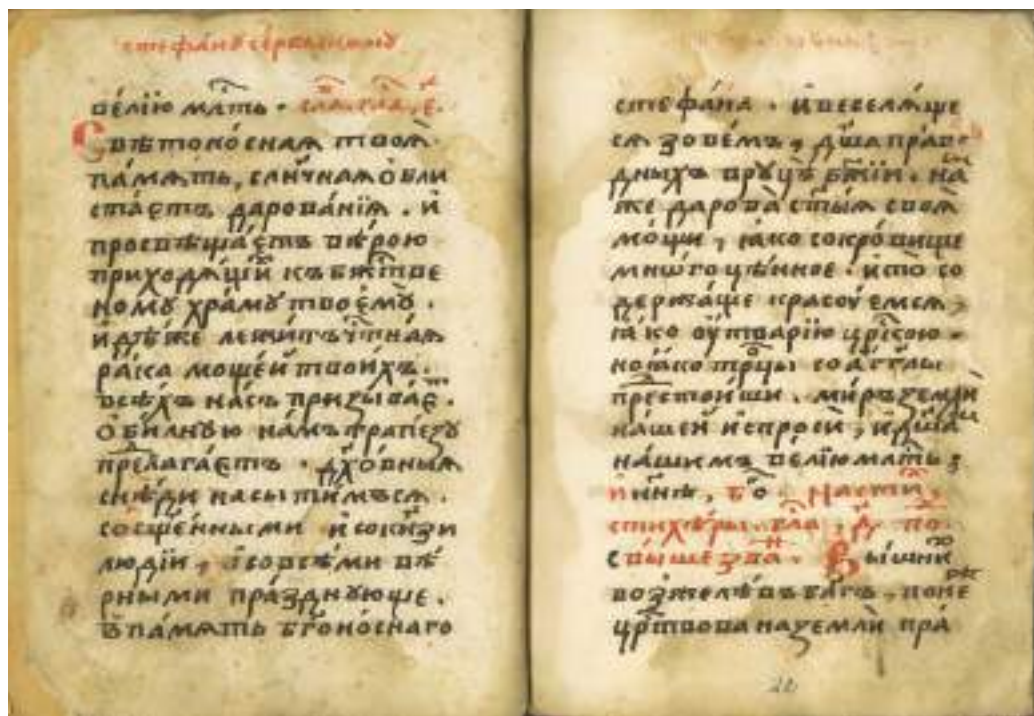 стефану сербскому
ве́лїю мл҃ть · сла́, гла́, є҃.
Свѣтоно́сная твоѧ̀
па́мѧть, сли́чная ѡ҆бли
ста́єтъ дарова́нїѧ . и҆
просвѣща́єтъ вѣ́рою
приходѧ́щїй къ бж҃тве
ному хра́му твоєму̀ .
и҆дѣ́же лежи́тъ ч҃тнаѧ
ра́ка моще́й твои́хъ .
всѣ́хъ на́съ призыва́є .
о҆би́лную на́мъ трапе́зу
прелага́єтъ . дх҃о́вныѧ
снѣ́ди насы́тимъсѧ .
со сщ҃е́нными и҆ со кнз҃и
лю́дїи , и҆ со всѣ́ми вѣ́
рными пра́зднующе .
в па́мѧть бг҃оно́снаго
стефа́на . и҆ веселѧ́ще
сѧ зове́мъ , дш҃а пра́ве
дныхъ в руцѣ̀ бж҃їи . на́
же дарова̀ ст҃ы́ѧ своѧ̀
мо́щи , ꙗ҆́ко сокро́вище
многоцѣ́нное . и҆ то̀ со
держа́ще красу́ємсѧ ,
ꙗ҆́ко ѹ҆́тварїю цр҃кою .
но ꙗ҆́ко трⷪ҇цы со а҆́гг҃лы
престои́ши . ми́ръ земли́
на́шей и҆спросѝ , и҆ дш҃а́мъ
на́шимъ ве́лїю мл҃ть ;
И҆ ны́нѣ , бг҃о . На сти ,
стихѣ́ры . гла́ , д҃ . по .
свы́ше зва́н . Вы́шни
возжелѣ́въ бл҃гъ , поне
цр҃твова на землѝ пра́
22